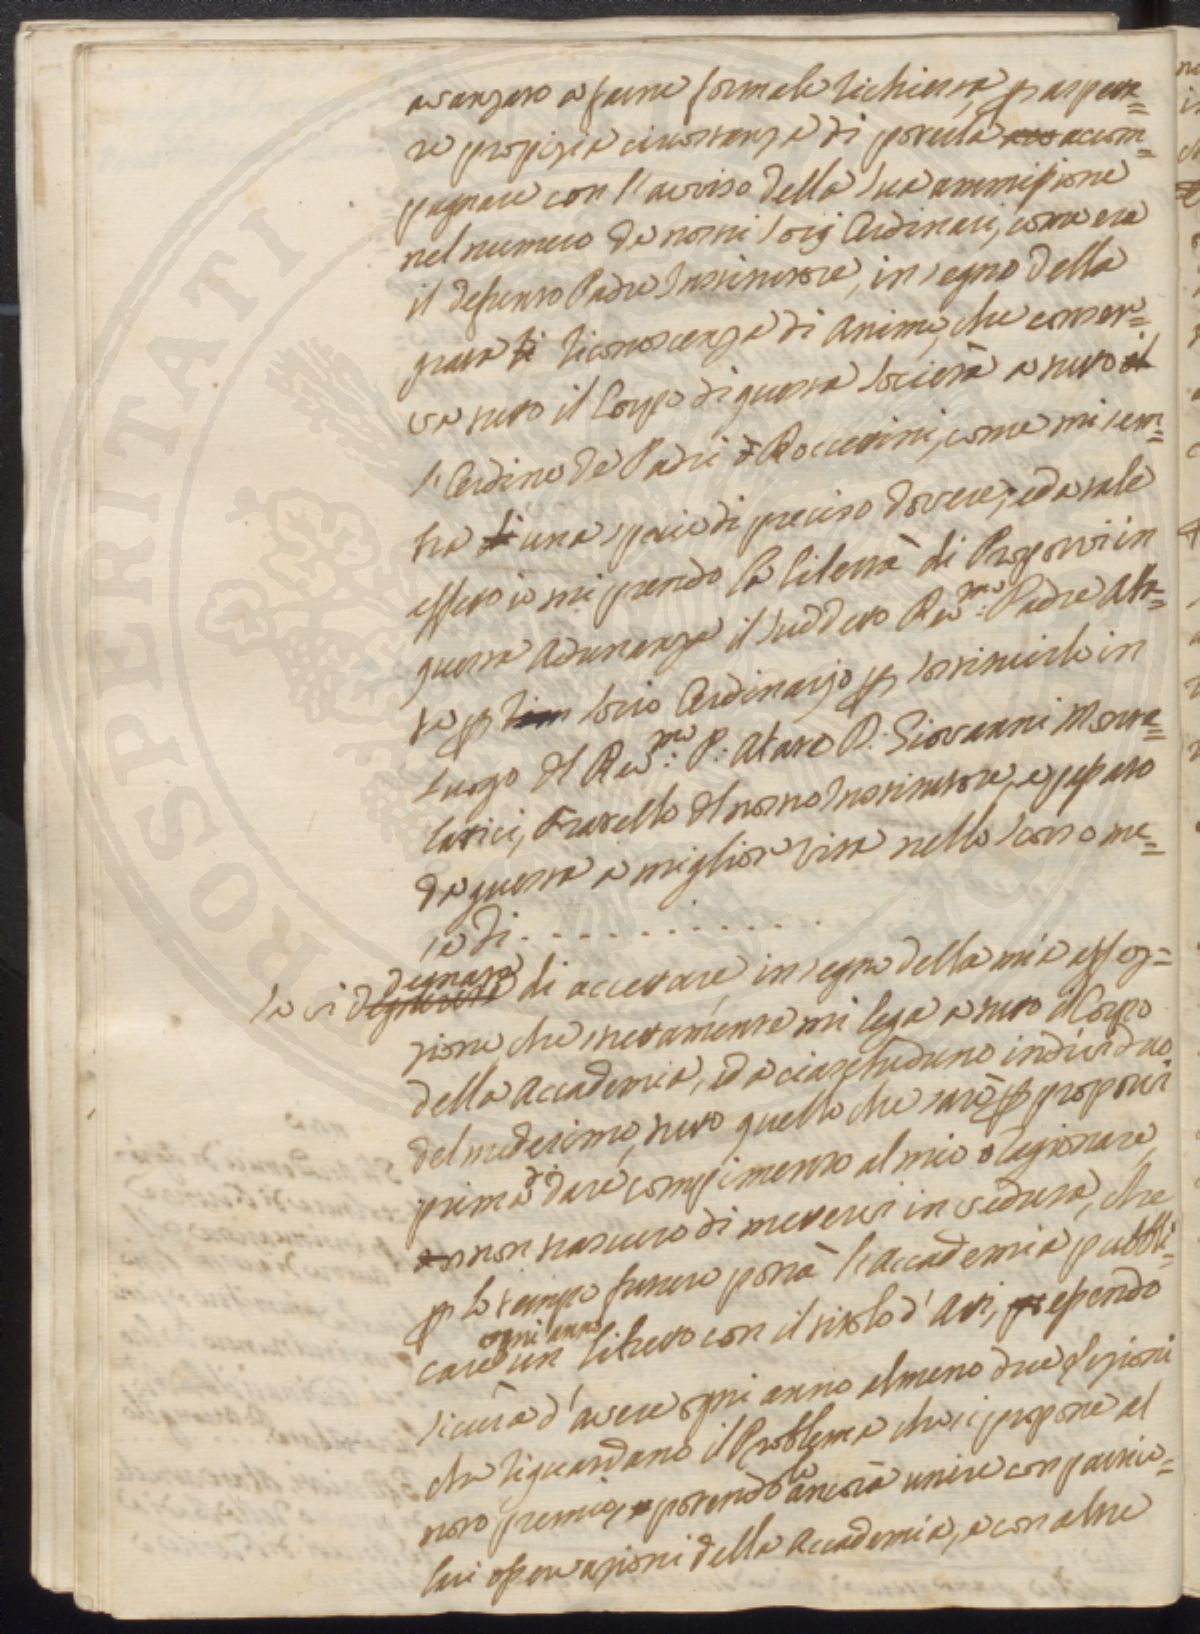 avanzato a farne formale richiesta, p aspetta=
re propizia circostanza di poterla acom=
pagnare con l'avviso della sua ammissione
nel numero de nostri Soci Ordinari, come era
il defunto Padre Institutore, in segno della
grata riconoscenza di animo, che conser=
va tutto il Corpo di questa società a tutto il
l'Ordine de Padri Roccettini, come mi sem=
bra una specie di preciso dovere, ed a tale
effetto io mi prendo la libertà di Proporvi in
questa Adunanza il suddetto Rev:mo Padre
p Socio Ordinario p sostituirlo in
luogo del Rev:mo P: Abate D: Giovanni Monte=
latici, Fratello del nostro Institutore, e passato
da questa a miglior vita nello scorso me=
se di . . . . . . . . . . . .
Se vi degnate di accettare in segno della mia affez=
zione che strettamente mi lega a tutto il Corpo
della Accademia, ed a ciascheduno individuo
del medesimo, tutto quello che sarò p proporvi
prima di dare compimento al mio ragionare,
non trascuro di mettervi in veduta, che
p lo tempo futuro potrà l'Accademia pubbli=
care ogni anno un libretto con il titolo d'Atti, essendo
sicura d'avere ogni anno almeno due Lezioni
che riguardano il Problema che si propone al
noto premio, potendole ancora unire con partico=
lari osservazioni della Accademia, e con altre